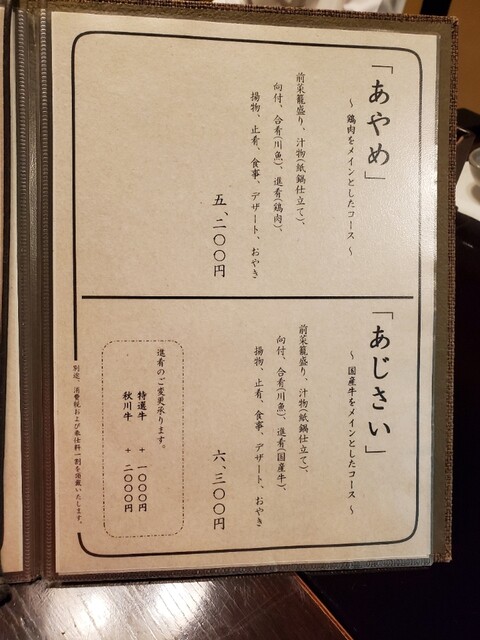 「あやめ」
～ 鶏肉をメインとしたコース ～
前菜籠盛り、汁物(紙鍋仕立て)、
向付、合肴(川魚)、進肴(鶏肉)、
揚物、止肴、食事、デザート、おやき
五、二〇〇円
「あじさい」
～ 国産牛をメインとしたコース ～
前菜籠盛り、汁物(紙鍋仕立て)、
向付、合肴(川魚)、進肴(国産牛)、
揚物、止肴、食事、デザート、おやき
六、三〇〇円
進肴のご変更承ります。
特選牛 + 一〇〇〇円
秋川牛 + 二〇〇〇円
別途、消費税および奉仕料一割を頂戴いたします。